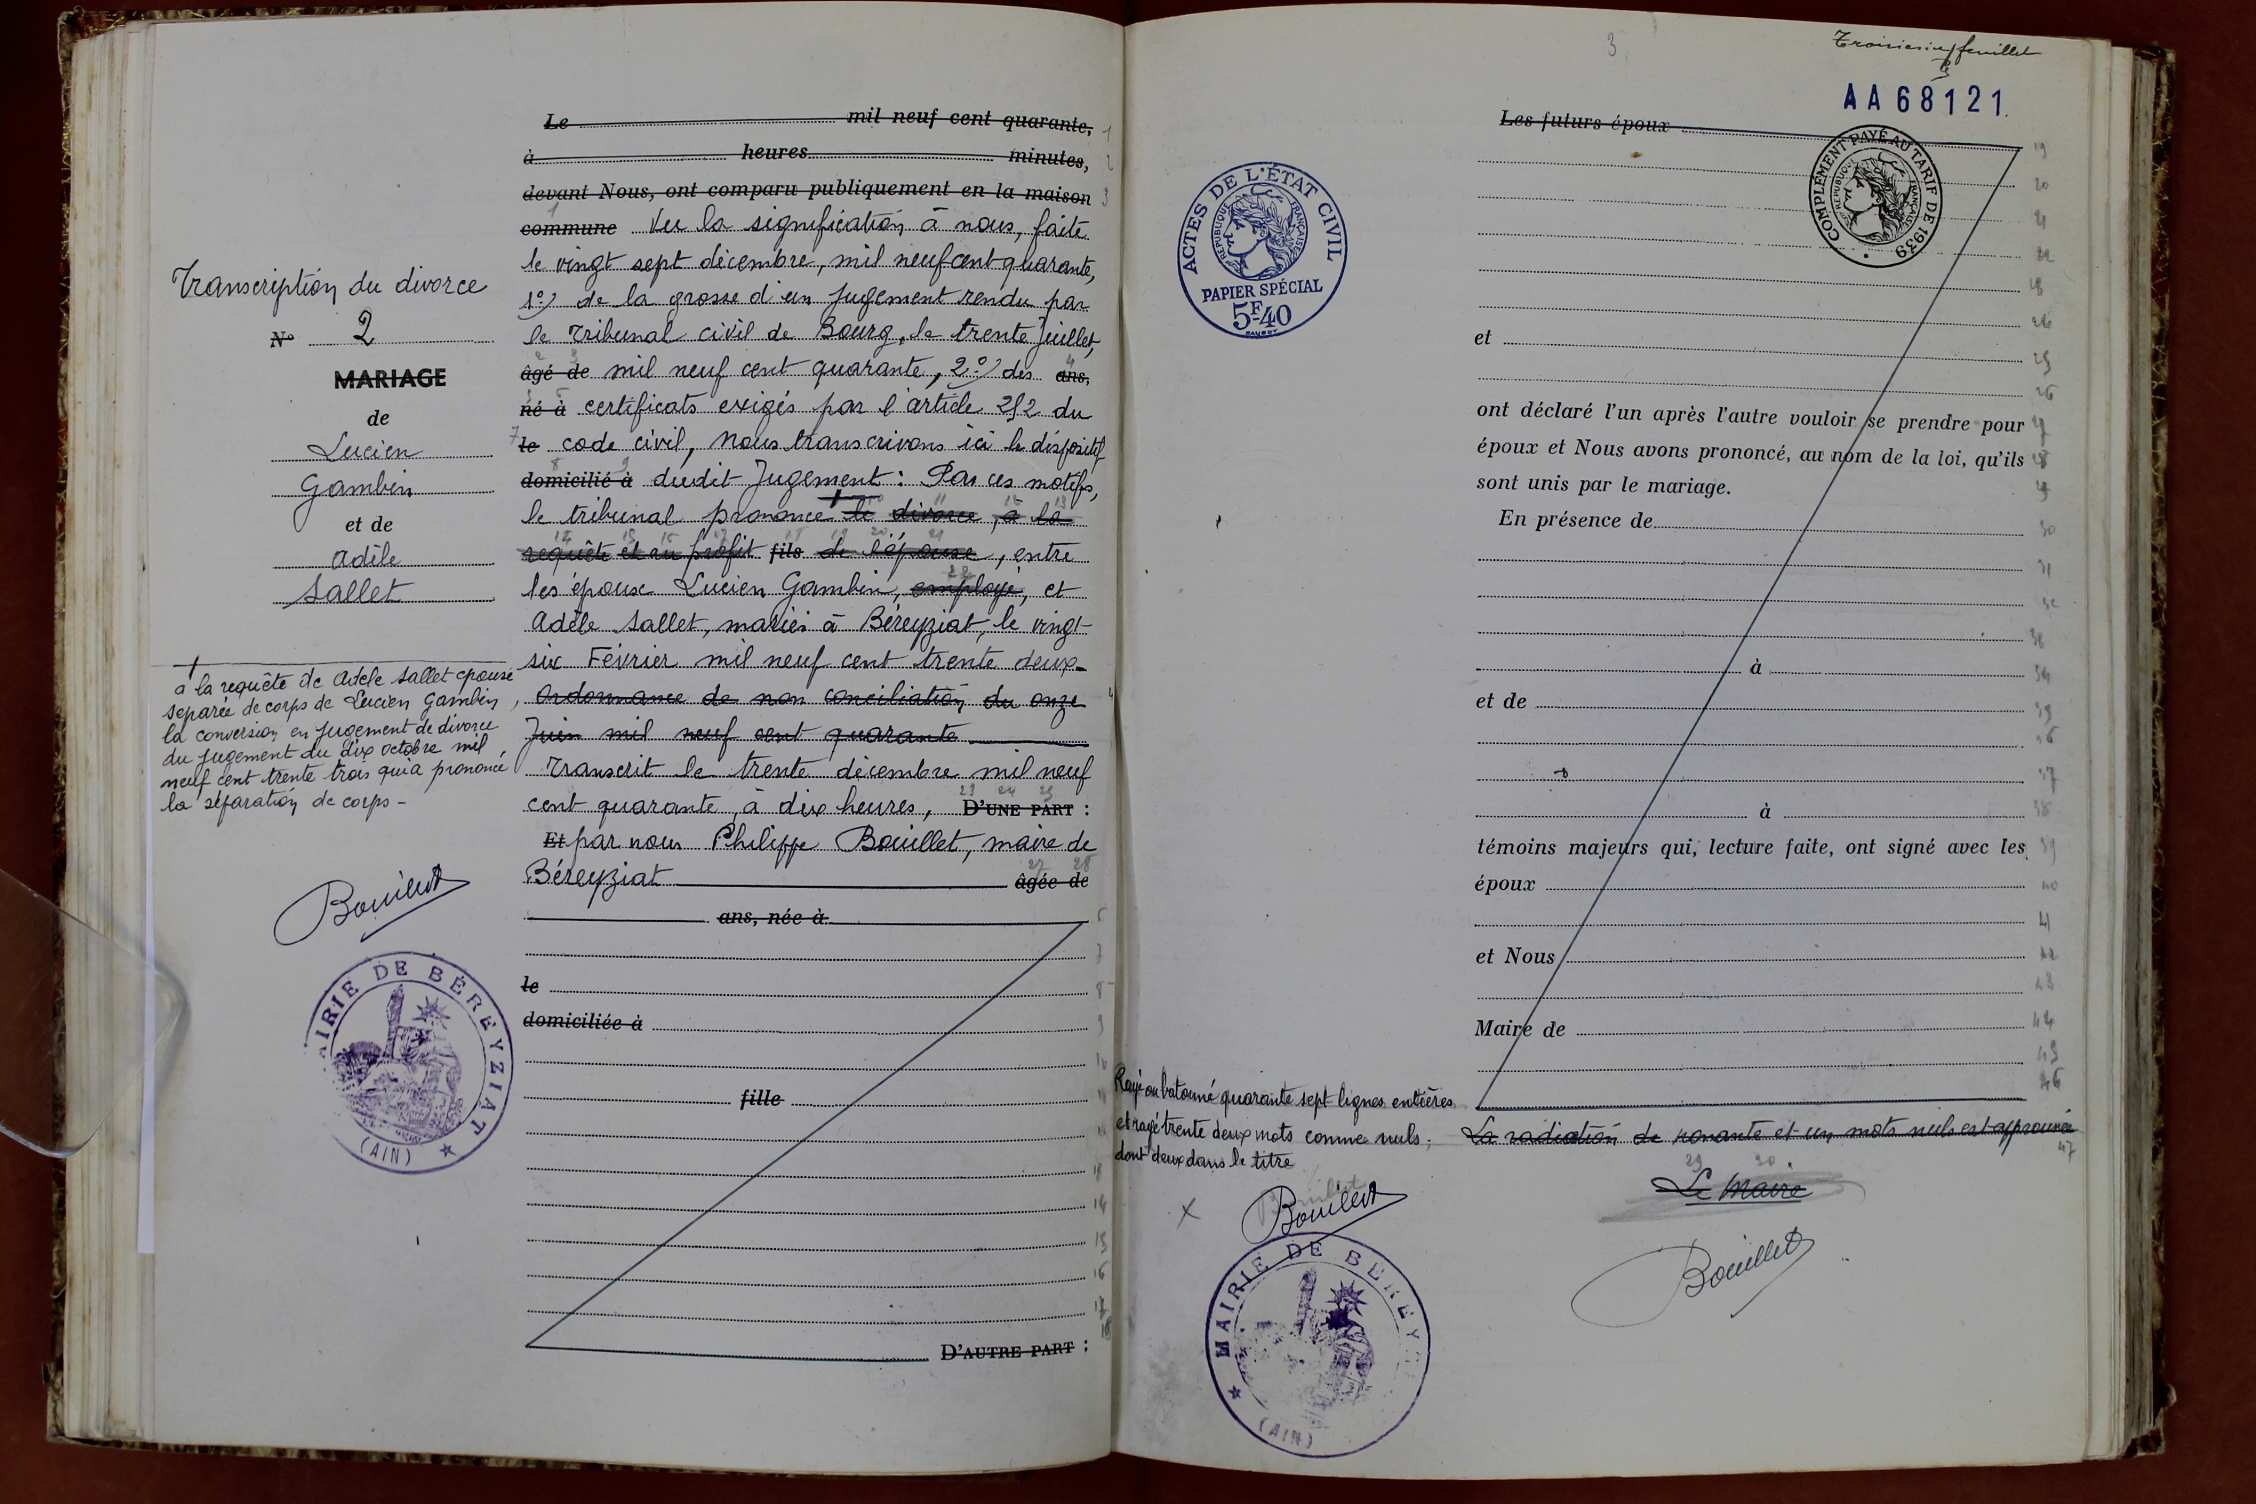 Transcription du divorce
N° 2
MARIAGE
de
Lucien
Gambin
et de
Adèle
Sallet
à la requête de Adèle Sallet épouse
séparée de corps de Lucien Gambin,
la conversion en jugement de divorce
du jugement du dix octobre mil
neuf cent trente trois qui a prononcé
la séparation de corps -
Bouillet
MAIRIE DE BÉREYZIAT
(AIN)
Le mil neuf cent quarante,
à heures minutes,
devant Nous, ont comparu publiquement en la maison
commune Vu la signification à nous, faite
le vingt sept décembre, mil neuf cent quarante,
1°) de la grosse d'un Jugement rendu par
le Tribunal civil de Bourg, le trente Juillet,
âgé de mil neuf cent quarante, 2°) des ans,
né à certificats exigés par l'article 252 du
le code civil, Nous transcrivons ici le dispositif
domicilié à dudit Jugement : Par ces motifs,
le tribunal prononce le divorce, à la
requête et au profit fils de l'épouse, entre
les époux Lucien Gambin, employé, et
Adèle Sallet, mariés à Béreyziat, le vingt-
six Février mil neuf cent trente deux-
Ordonnance de non conciliation du onze
Juin mil neuf cent quarante
Transcrit le trente décembre mil neuf
cent quarante, à dix heures, D'UNE PART :
Et par nous Philippe Bouillet, maire de
Béreyziat âgée de
ans, née à
le
domiciliée à
fille
D'AUTRE PART :
3
Troisième feuillet
AA68121
ACTES DE L'ÉTAT CIVIL
RÉPUBLIQUE FRANÇAISE
PAPIER SPÉCIAL
5F40
COMPLÉMENT PAYÉ AU TARIF DE 1939
RÉPUBLIQUE FRANÇAISE
Les futurs époux
et
ont déclaré l'un après l'autre vouloir se prendre pour
époux et Nous avons prononcé, au nom de la loi, qu'ils
sont unis par le mariage.
En présence de
à
et de
à
témoins majeurs qui, lecture faite, ont signé avec les
époux
et Nous
Maire de
Rayé ou batonné quarante sept lignes entières
et rayé trente deux mots comme nuls ;
dont deux dans le titre
Bouillet
MAIRIE DE BÉREYZIAT
(AIN)
La radiation de nonante et un mots nuls est approuvée
Le Maire
Bouillet